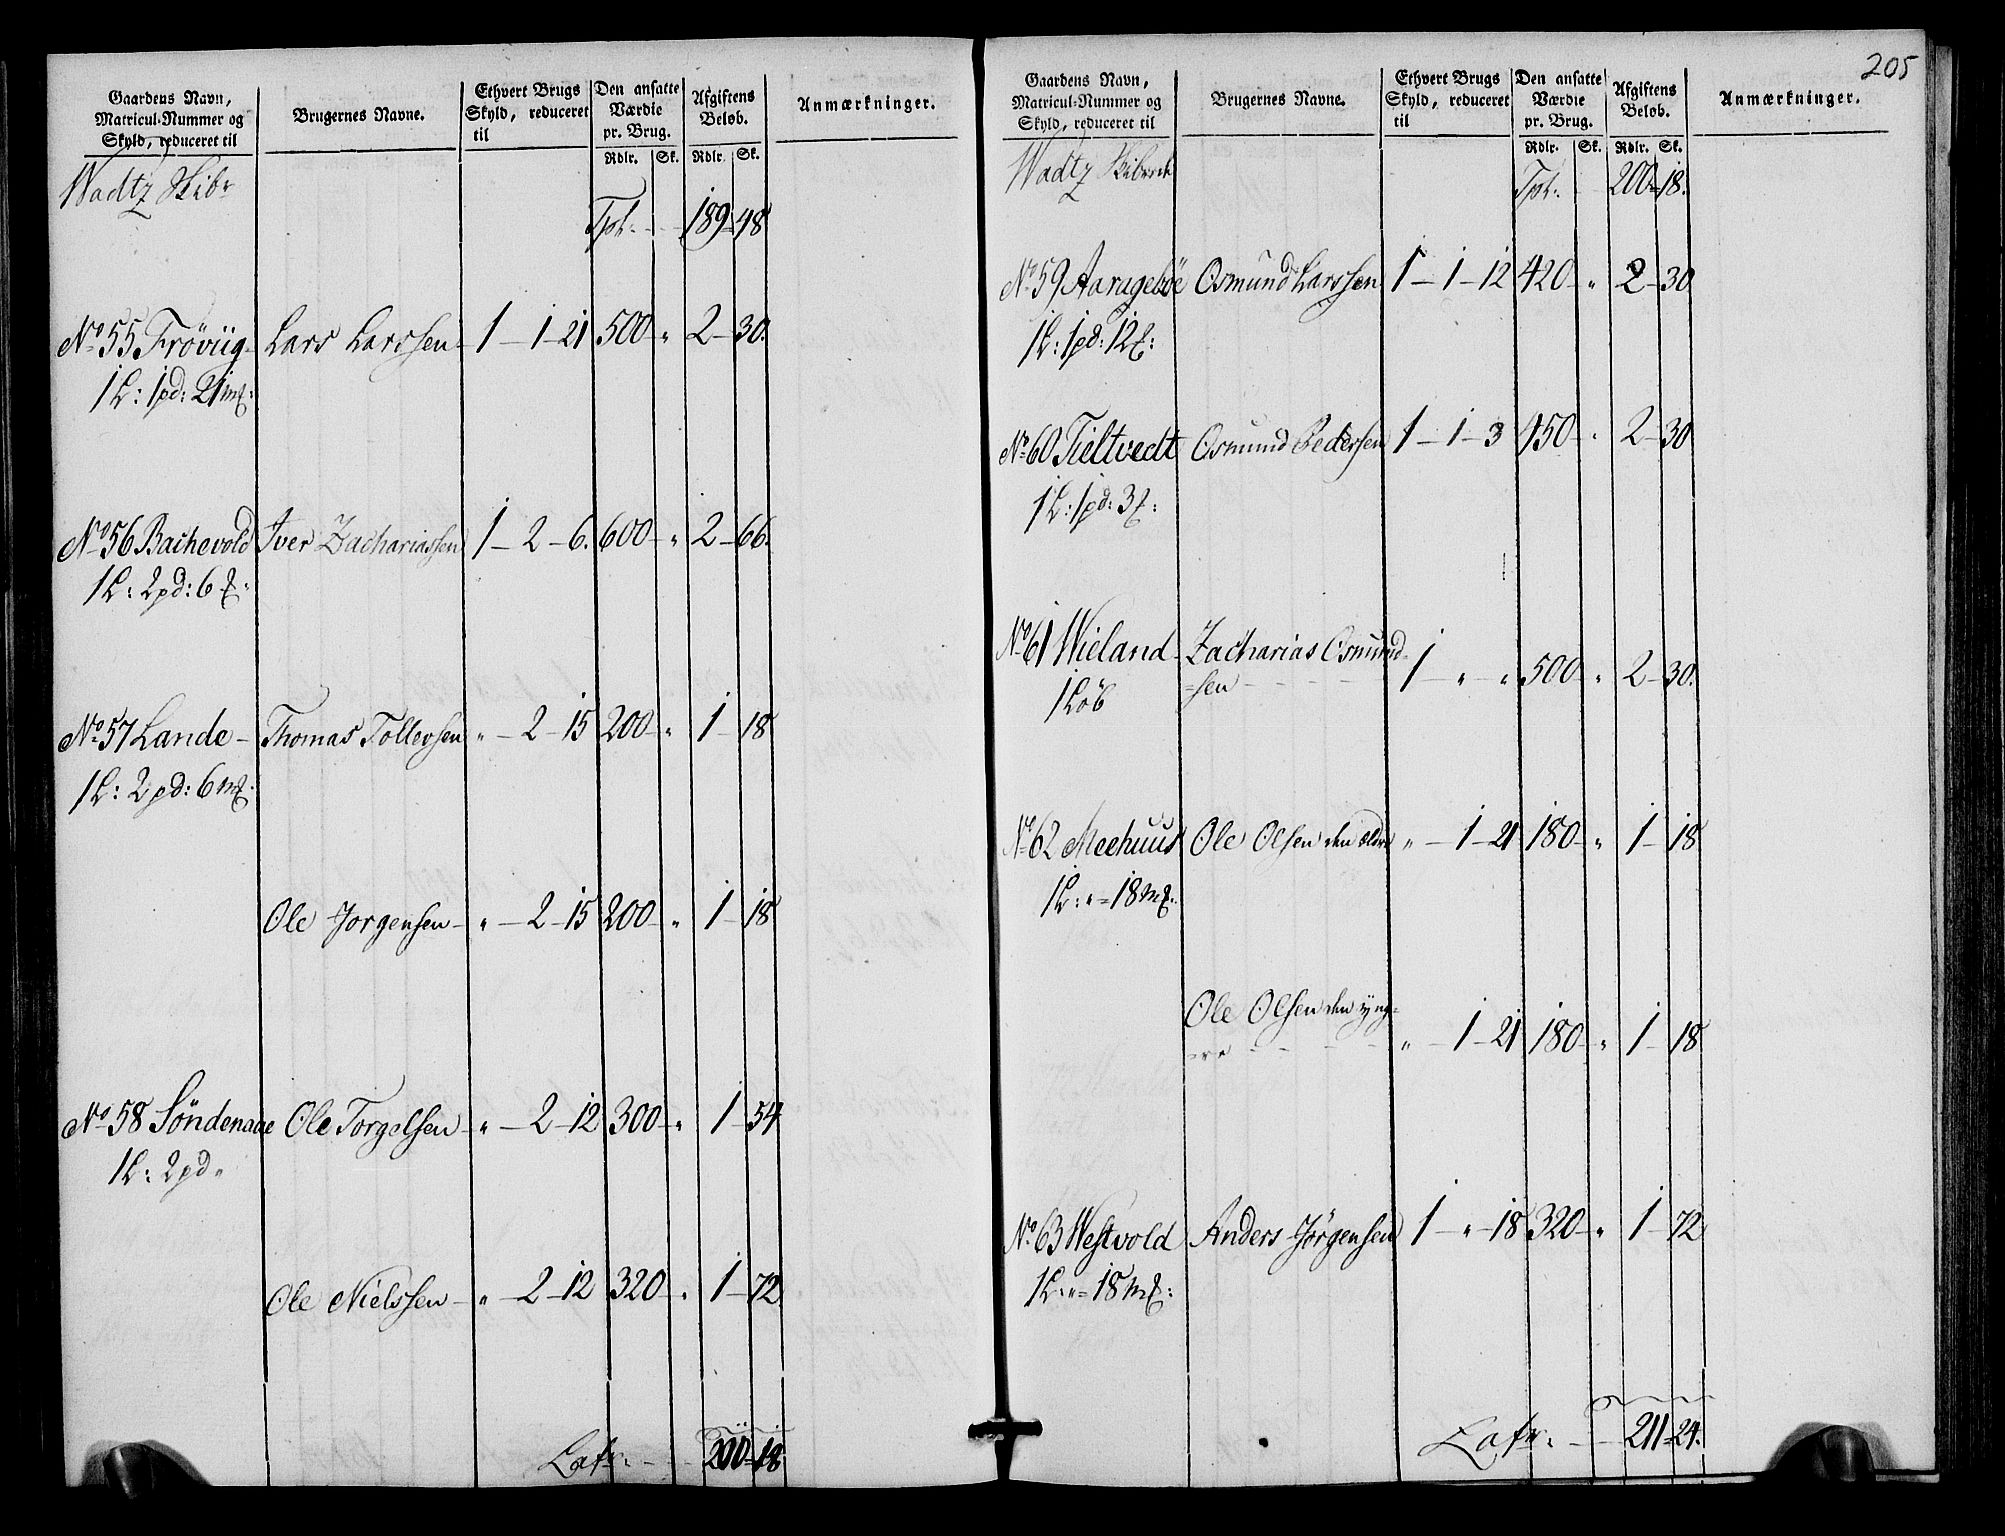 Gaardens Navn, Matricul-Nummer og Skyld, reduceret til
Brugernes Navne.
Ethvert Brugs Skyld, reduceret til
Den ansatte Værdie pr. Brug.
Afgiftens Beløb.
Anmærkninger.
Rdlr. Sk. Rdlr. Sk.
Wadtz Skibr
Tpt: 189-48
No 55 Frøviig Lars Larssen 1-1-21 500 " 2-30.
1L: 1pd: 21m:
No 56 Bachevold Iver Zachariassen 1-2-6. 600 " 2-66.
1L: 2pd: 6
No 57 Lande Thomas Tollevsen "-2-15 200 " 1-18
1L: 2pd: 6m:
Ole Jorgensen "-2-15 200 " 1-18
No 58 Söndenaae Ole Torgelsen "-2-12 300 " 1-54
1L: 2pd "
Ole Nielssen "-2-12 320 " 1-72
Latr: 200-18
205
Gaardens Navn, Matricul-Nummer og Skyld, reduceret til
Brugernes Navne.
Ethvert Brugs Skyld, reduceret til
Den ansatte Værdie pr. Brug.
Afgiftens Beløb.
Anmærkninger.
Rdlr. Sk. Rdlr. Sk.
Wadtz
Tpt: 200=18.
No 59 Aarageböe Osmund Larssen 1-1-12 420 " 2-30
1L: 1pd: 12
No 60 Tieltvedt Osmund Pedersen 1-1-3 450 " 2-30
1L: 1pd: 3
No 61 Wieland Zacharias Osmund=
=sen 1 " " 500 " 2-30.
1Löb
No 62 Meehuus Ole Olsen den ældre "-1-21 180 " 1-18
1L: "=18m:
Ole Olsen den yng=
=re "-1-21 180 " 1-18
No 63 Westvold Anders Jörgensen 1-"-18 320 " 1-72
1L: "=18m:
Latr: 211=24.